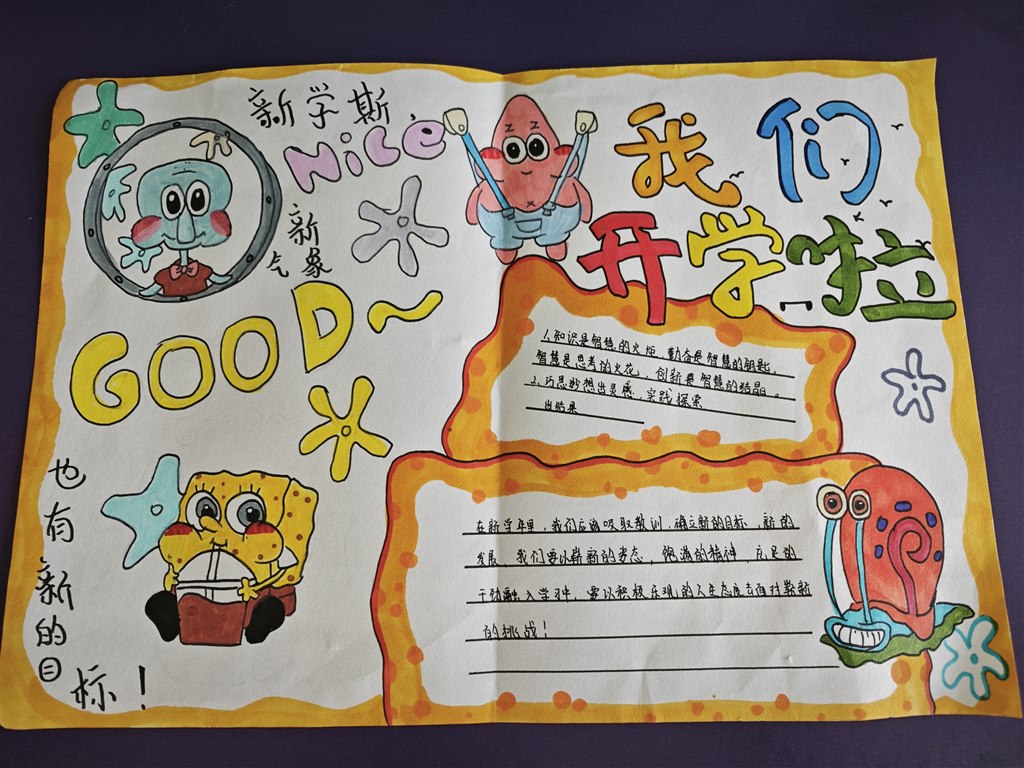 新学斯
Nice
新
气象
GOOD~
我们
开学啦
1.知识是智慧的火炬,勤奋是智慧的钥匙,
智慧是思考的火花,创新是智慧的结晶。
2.巧思妙想出灵感,实践探索
出结果
在新学年里,我们应该吸取教训,确立新的目标,新的
发展,我们要以崭新的姿态,饱满的精神,
干劲融入学习中,要以积极乐观的人生态度去面对
的挑战!
也有新的目标!